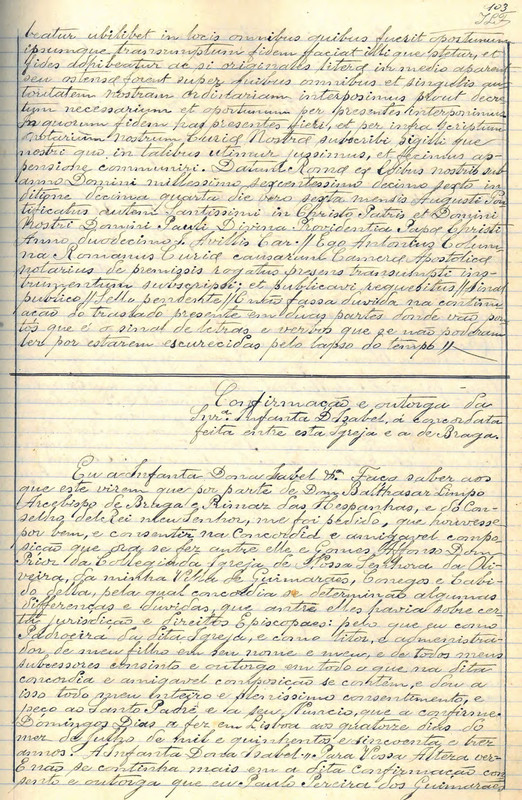 103
beatur ubilibet in locis omnibus quibus fuerit oportunum
ipsumque transumptum fidem faciat illique stetur, et
fides adhibeatur ac si originales litera in medio aparent
seu ostensa forent super quibus omnibus et singulis auc
toritatem nostram ordinariam interposimus prout decre
tum necessarium et oportunum per presentes interponimus
In quorum fidem has presentes fieri, et per infra scriptum
Notarium nostrum Curiæ Nostræ subscribi sigilli que
nostri quo in talibus utimur jussimus, et fecimus ap-
pensione communiri. Datum Romæ ex Ædibus nostris sub
anno Domini millessimo sexcentessimo decimo sexto in
ditione decima quarta die vero sexta mensis Augusti Pon
tificatus autem Santissimi in Christo Patris et Domini
Nostri Domini Pauli Divina Providentia Papæ Christi
Anno duodecimo
Ego Antonius Colum
na Romanus Curiæ causarum Cameræ Apostolicæ
notarius de premissis rogatus presens transumpti ins-
trumentum subscripsi; et publicavi requebitus // Sinal
publico // Sello pendente // E não fassa duvida na continu
ação do traslado presente em duas partes donde vão pon
tos que é o sinal de letras e verbos que se não poderam
ler por estarem escurecidas pelo lapso do tempo //
Confirmação e outorga da
Snr.ª Infanta D. Izabel, á concordata
feita entre esta Igreja e a de Braga.
Eu a Infanta Dona Isabel &.ª Faço saber aos
que este virem que por parte de Dom Balthasar Limpo
Arcebispo de Braga e Primaz das Hespanhas, e do Con-
selho delRei meu Senhor, me foi pedido, que houvesse
por bem, e consentir na Concordia e amigavel compo
sição que ora se fez antre elle e Gomes Affonso Dom
Prior da Collegiada Igreja de Nossa Senhora da Oli-
veira, da minha Villa de Guimarães, Conegos e Cabi-
do della, pela qual concordia se determinão algumas
differenças e duvidas, que antre elles havia sobre cer
ta jurisdição e direitos Episcopaes: pelo que eu como
Padroeira da dita Igreja, e como titor, e administra-
dor de meu filho em seu nome e meu, e de todos meus
subcessores consinto e outorgo em todo o que na dita
concordia e amigavel composição se contem, e dou a
isso todo meu inteiro e plenissimo consentimento, e
peço ao Santo Padre e a seu Nuncio, que a confirme.
Domingos Dias a fez em Lisboa aos quatorze dias do
mez de Julho de mil e quinhentos, e sincoenta e trez
annos. A Infanta Dona Isabel // Para Vossa Alteza ver
E não se continha mais em a dita Confirmação con
sento e outorga que eu Paulo Pereira dos Guimarães